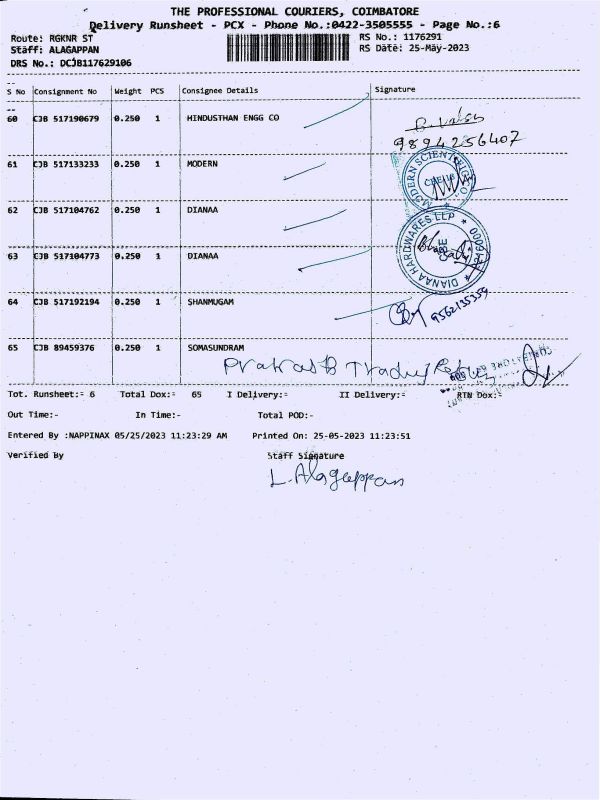 THE PROFESSIONAL COURIERS, COIMBATORE
Delivery Runsheet - PCX - Phone No.:0422-3505555 - Page No.:6
Route: RGKNR ST
RS No.: 1176291
Staff: ALAGAPPAN
RS Date: 25-May-2023
DRS No.: DCJB117629106
S No Consignment No Weight PCS Consignee Details Signature
60 CJB 517190679 0.250 1 HINDUSTHAN ENGG CO
9894256407
61 CJB 517133233 0.250 1 MODERN
MODERN SCIENTIFIC CO.
62 CJB 517104762 0.250 1 DIANAA
63 CJB 517104773 0.250 1 DIANAA
DIANAA HARDWARES LLP
64 CJB 517192194 0.250 1 SHANMUGAM
9562135359
65 CJB 89459376 0.250 1 SOMASUNDRAM
Tot. Runsheet:= 6 Total Dox:= 65 I Delivery:= II Delivery:= RTN Dox:=
Out Time:- In Time:- Total POD:-
Entered By :NAPPINAX 05/25/2023 11:23:29 AM Printed On: 25-05-2023 11:23:51
Verified By Staff Signature
L. Alagappan